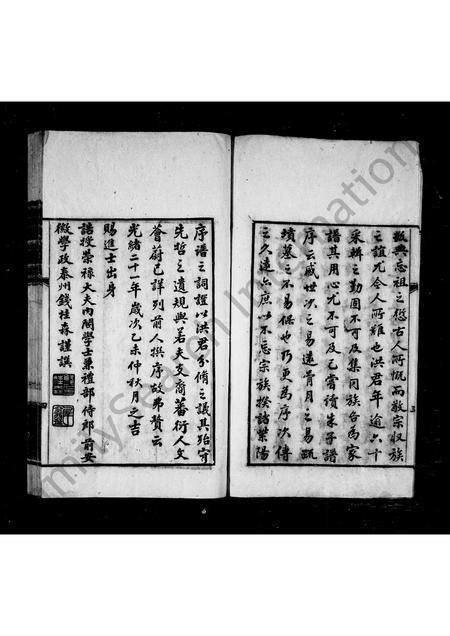 數典忘祖之愆古人所慨而敬宗收族
之誼尤令人所難也洪君年逾六十
采輯之勤固不可及集同族合為家
譜其用心尤不可及已嘗讀朱子譜
序云感世次之易遠骨月之易疏
墳墓之不易保也乃更為序次傳
之久遠庶以不忘宗族揆諸紫陽
序譜之詞證以洪君分脩之議其殆守
先哲之遺規與若夫支裔蕃衍人文
薈蔚已詳列前人撰序故弗贅云
光緒二十一年歲次乙未仲秋月之吉
賜進士出身
誥授榮祿大夫內閣學士兼禮部侍郎前安
徽學政泰州錢桂森謹譔
FamilySearch International